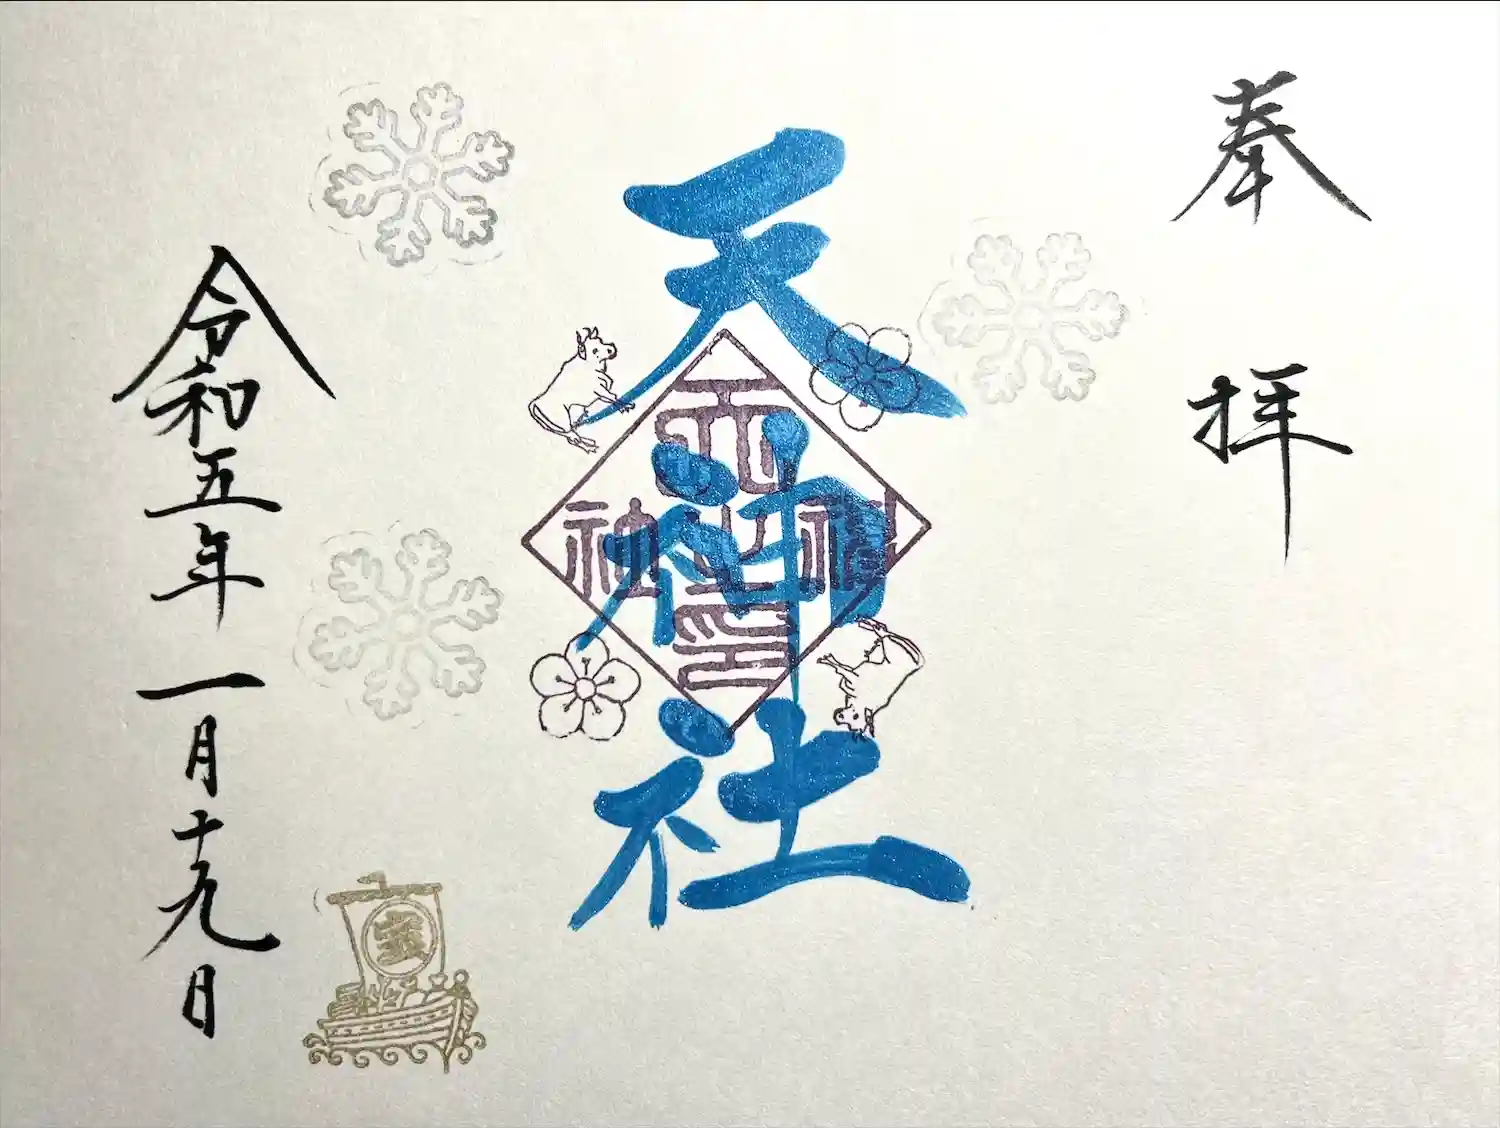 奉拝
天神社
天神社之印
令和五年一月十九日
宝